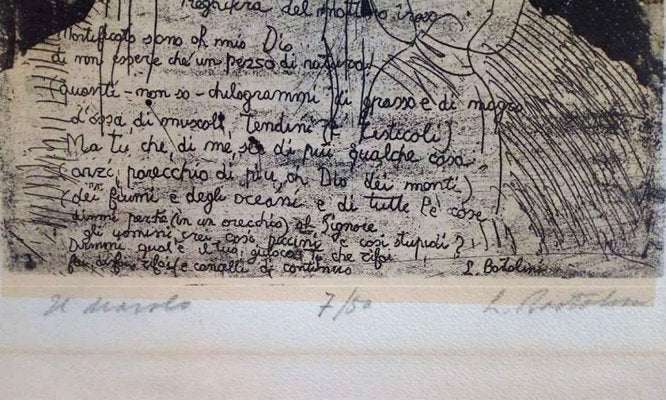 Preghiera del mattino
Mortificato sono oh mio Dio
di non essere che un pezzo di natura.
quanti - non so - chilogrammi di grasso e di magro
d'ossa, di muscoli, tendini (e testicoli)
Ma tu che di me, sei di più qualche cosa
anzi, parecchio di più, oh Dio dei monti)
(dei fiumi e degli oceani e di tutte le cose
dimmi perchè (in un orecchio) oh Signore
gli uomini crei così piccini e così stupidi?
Dimmi qual'è il tuo giuoco tu che rifai
fai disfai, rifai e cancelli di continuo
L. Bartolini
Il diavolo 7/50 L. Bartolini